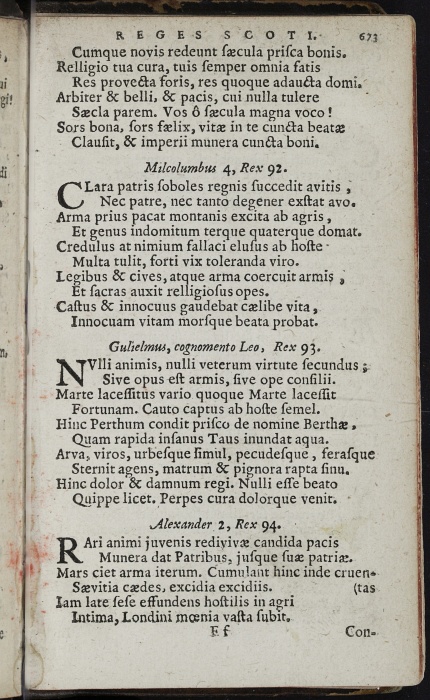 REGES SCOTI. 673
Cumque novis redeunt sæcula prisca bonis.
Relligio tua cura, tuis semper omnia fatis
Res provecta foris, res quoque adaucta domi.
Arbiter & belli, & pacis, cui nulla tulere
Sæcla parem. Vos ô sæcula magna voco!
Sors bona, sors fælix, vitæ in te cuncta beatæ
Clausit, & imperii munera cuncta boni.
Milcolumbus 4, Rex 92.
CLara patris soboles regnis succedit avitis,
Nec patre, nec tanto degener exstat avo.
Arma prius pacat montanis excita ab agris,
Et genus indomitum terque quaterque domat.
Credulus at nimium fallaci elusus ab hoste
Multa tulit, forti vix toleranda viro.
Legibus & cives, atque arma coercuit armis,
Et sacras auxit relligiosus opes.
Castus & innocuus gaudebat cælibe vita,
Innocuam vitam morsque beata probat.
Gulielmus, cognomento Leo, Rex 93.
NVlli animis, nulli veterum virtute secundus;
Sive opus est armis, sive ope consilii.
Marte lacessitus vario quoque Marte lacessit
Fortunam. Cauto captus ab hoste semel.
Hinc Perthum condit prisco de nomine Berthæ,
Quam rapida insanus Taus inundat aqua.
Arva, viros, urbesque simul, pecudesque, ferasque
Sternit agens, matrum & pignora rapta sinu.
Hinc dolor & damnum regi. Nulli esse beato
Quippe licet. Perpes cura dolorque venit.
Alexander 2, Rex 94.
RAri animi juvenis redivivæ candida pacis
Munera dat Patribus, jusque suæ patriæ.
Mars ciet arma iterum. Cumulant hinc inde cruen-
Sævitia cædes, excidia excidiis. (tas
Iam late sese effundens hostilis in agri
Intima, Londini mœnia vasta subit.
Ff Con-